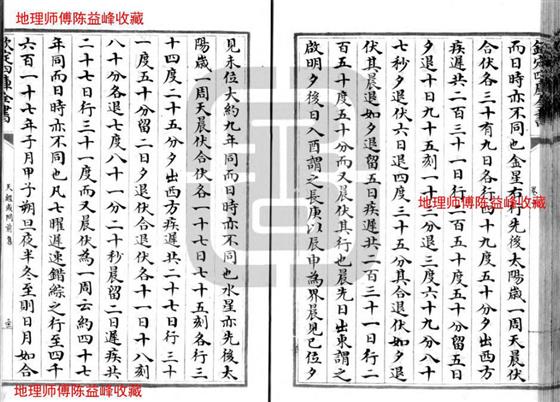 地理师傅陈益峰收藏
欽定四庫全書
而日時亦不同也金星右行先後太陽歲一周天晨伏
合伏各三十有九日各行四十九度五十分夕出西方
疾遲共二百三十一日行二百五十度五十分夕留五日
夕退十日九十五刻一十三分退三度六十九分八十
七秒夕退伏六日退四度三十五分其合退伏如夕退
伏其晨退如夕退晨留五日疾遲共二百三十一日行二
百五十度五十分而又晨伏其行也晨先日出東謂之
啟明夕後日入酉謂之長庚以辰申為界晨見巳位夕
地理师傅陈益峰收藏
見未位大約九年同而日時亦不同也水星亦先後太
陽歲一周天晨伏合伏各一十七日七十五刻各行三
十四度二十五分夕出西方疾遲共二十七日行三十
一度五十分留二日夕退伏合退伏各十一日十八刻
八十分各退七度八十一分二十秒晨留二日遲疾共
二十七日行三十一度而又晨伏為一周云約四十七
年同而日時亦不同也凡七曜遲速錯綜之行至四千
六百一十七年子月甲子朔旦夜半冬至則日月如合
欽定四庫全書
天經或問前集
地理师傅陈益峰收藏